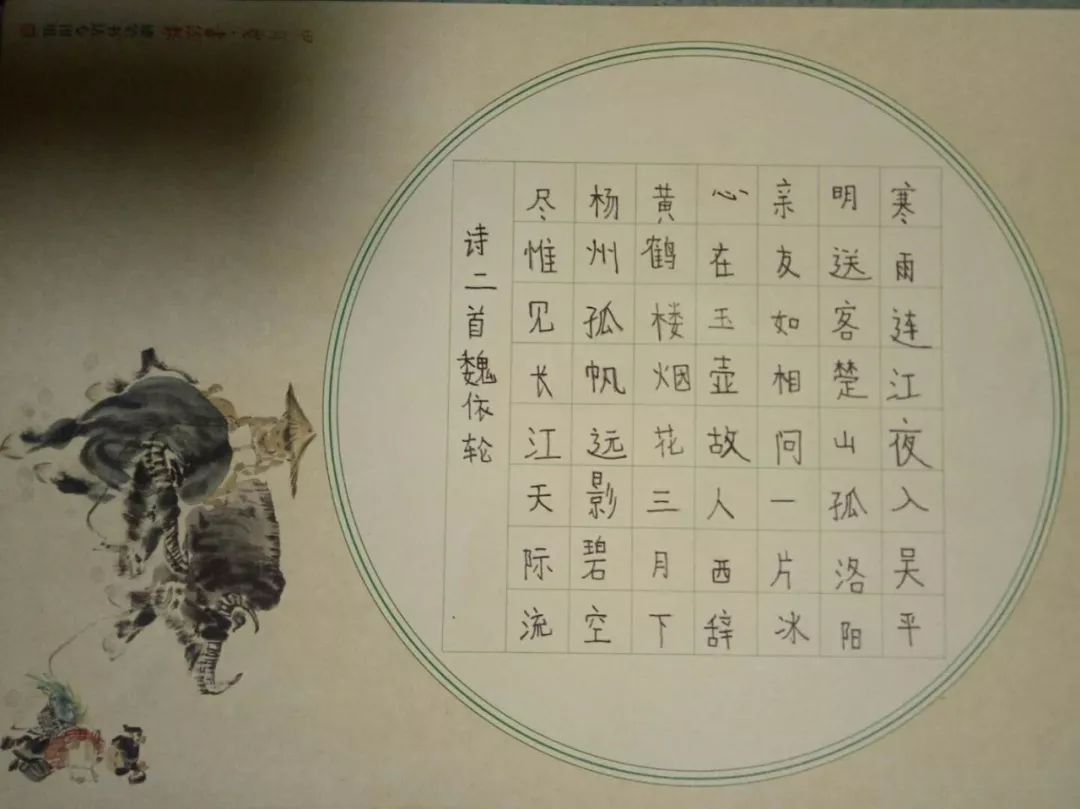 寒雨连江夜入吴平
明送客楚山孤洛阳
亲友如相问一片冰
心在玉壶故人西辞
黄鹤楼烟花三月下
杨州孤帆远影碧空
尽惟见长江天际流
诗二首魏依轮